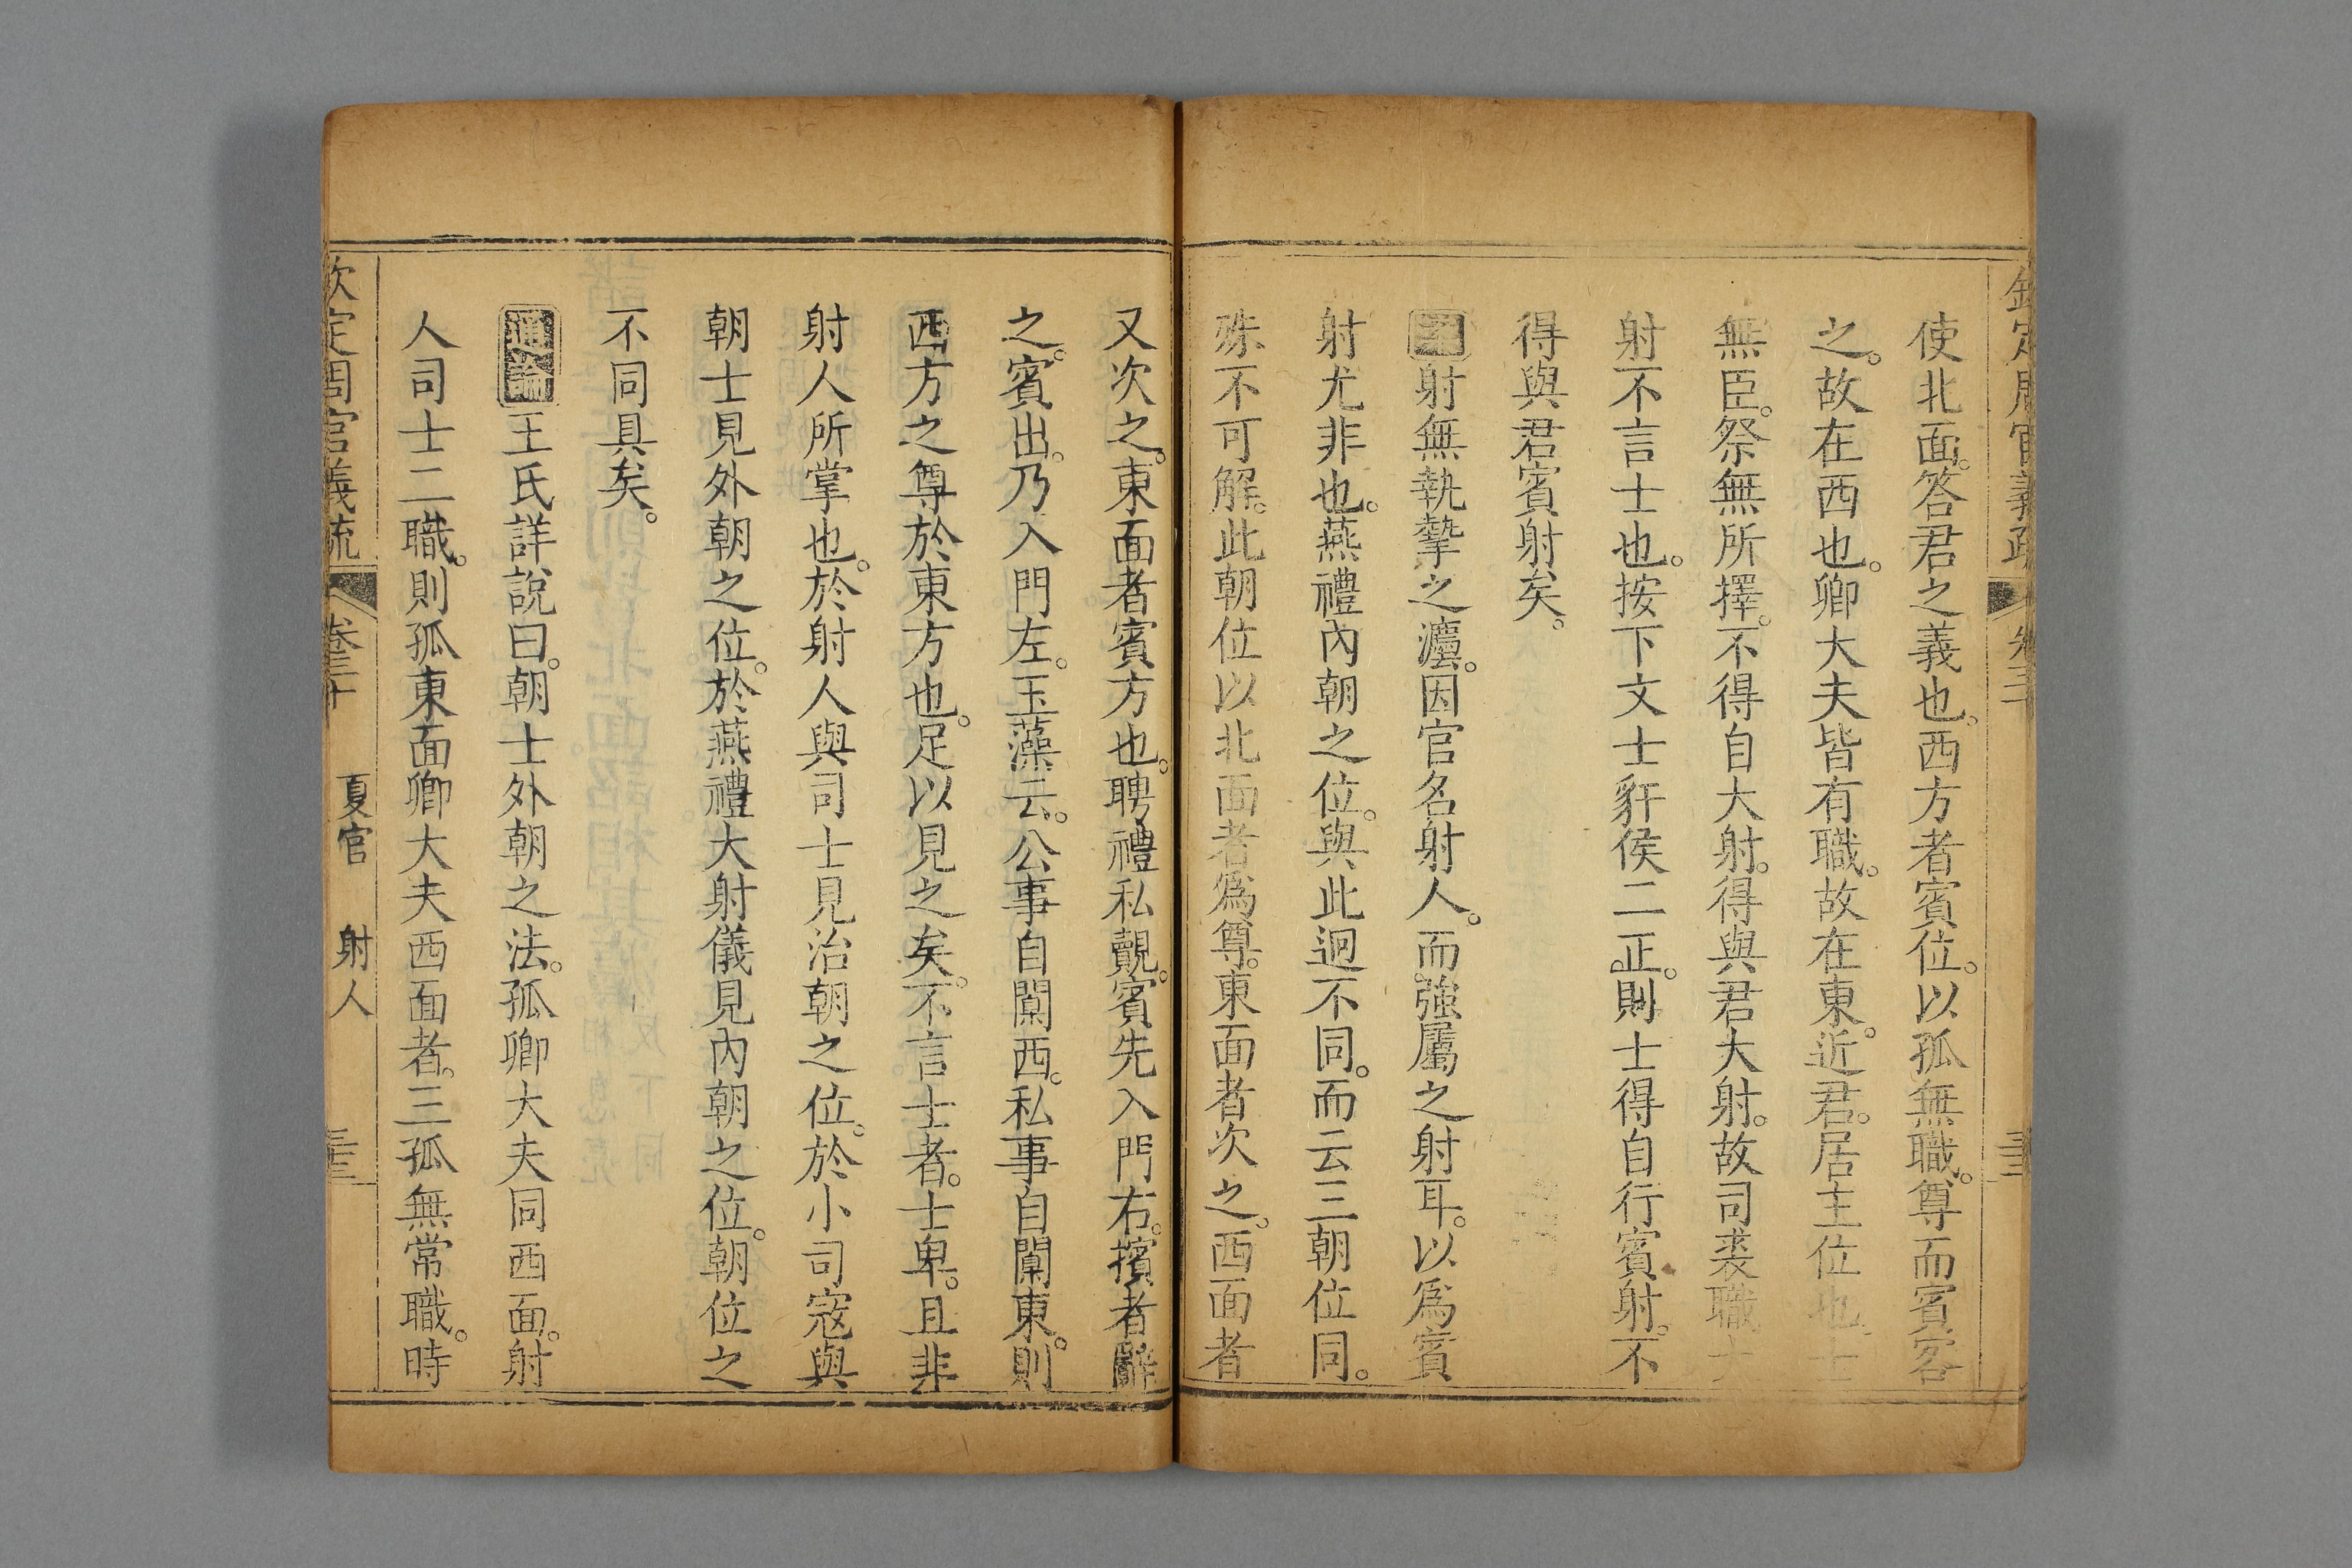 使北面。答君之義也。西方者賓位。以孤無職。尊而賓客
之。故在西也。卿大夫皆有職。故在東。近君。居主位也。士
無臣。祭無所擇。不得自大射。得與君大射。故司裘職士
射不言士也。按下文士豻侯二正。則士得自行賓射。不
得與君賓射矣。
案射無執摯之灋。因官名射人。而強屬之射耳。以為賓
射尤非也。燕禮內朝之位。與此迥不同。而云三朝位同。
殊不可解。此朝位以北面者為尊。東面者次之。西面者
又次之。東面者賓方也。聘禮私覿。賓先入門右。擯者辭
之。賓出。乃入門左。玉藻云。公事自闑西。私事自闑東。則
西方之尊於東方也。足以見之矣。不言士者。士卑。且非
射人所掌也。於射人與司士見治朝之位。於小司寇與
朝士見外朝之位。於燕禮大射儀見內朝之位。朝位之
不同具矣。
通論王氏詳說曰。朝士外朝之法。孤卿大夫同西面。射
人司士二職。則孤東面卿大夫西面者。三孤無常職。時
欽定周官義疏 卷三十 夏官 射人 三十三